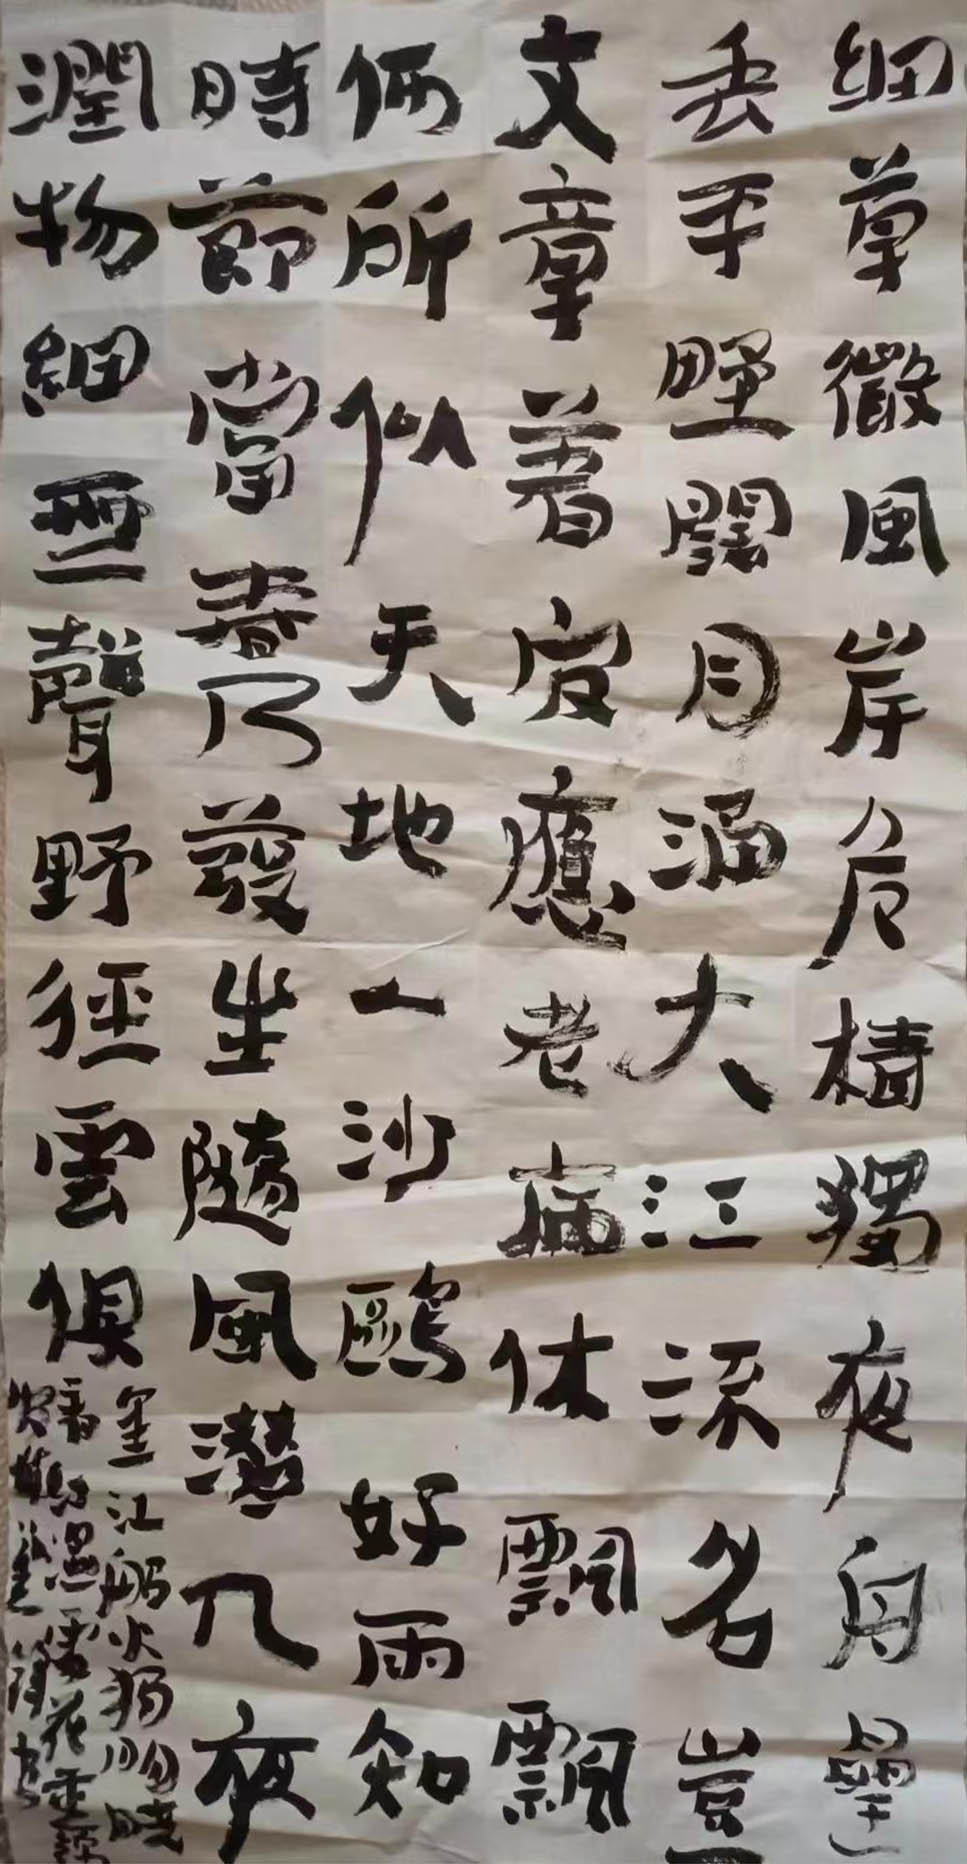 細草微風岸危樯獨夜舟星
垂平野闊月涌大江流名豈
文章著官應老病休飄飄
何所似天地一沙鷗好雨知
時節當春乃發生隨風潛入夜
潤物細無聲野徑雲俱
黑江船火獨明曉
看紅濕處花重錦